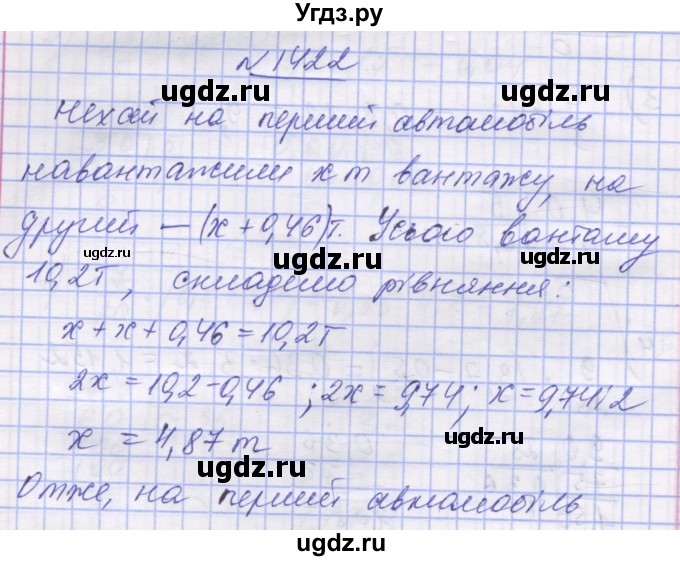 Угдз.ру
№1422
ugdz.ru ugdz.ru
Нехай на перший автомобіль
навантажили x т вантажу, на
ugdz.ru ugdz.ru
другий – (x + 0,46)т. Усього вантажу
ugdz.ru ugdz.ru
10,2т, складемо рівняння:
ugdz.ru
x + x + 0,46 = 10,2т
2x = 10,2 - 0,46 ; 2x = 9,74; x = 9,74:2
ugdz.ru ugdz.ru
x = 4,87 т
ugdz.ru
Отже, на перший автомобіль
ugdz.ru ugdz.ru
ugdz.ru